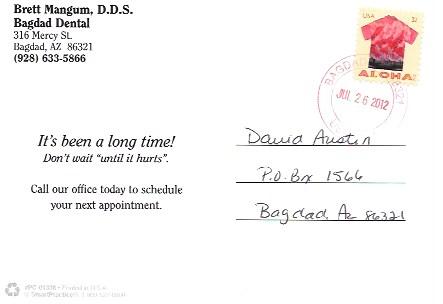 Brett Mangum, D.D.S.
Bagdad Dental
316 Mercy St.
Bagdad, AZ 86321
(928) 633-5866
USA 32
ALOHA
JUL 26 2012
It's been a long time!
Don't wait "until it hurts".
Call our office today to schedule
your next appointment.
David Austin
P.O. Box 1566
Bagdad, Az 86321
Printed in U.S.A.